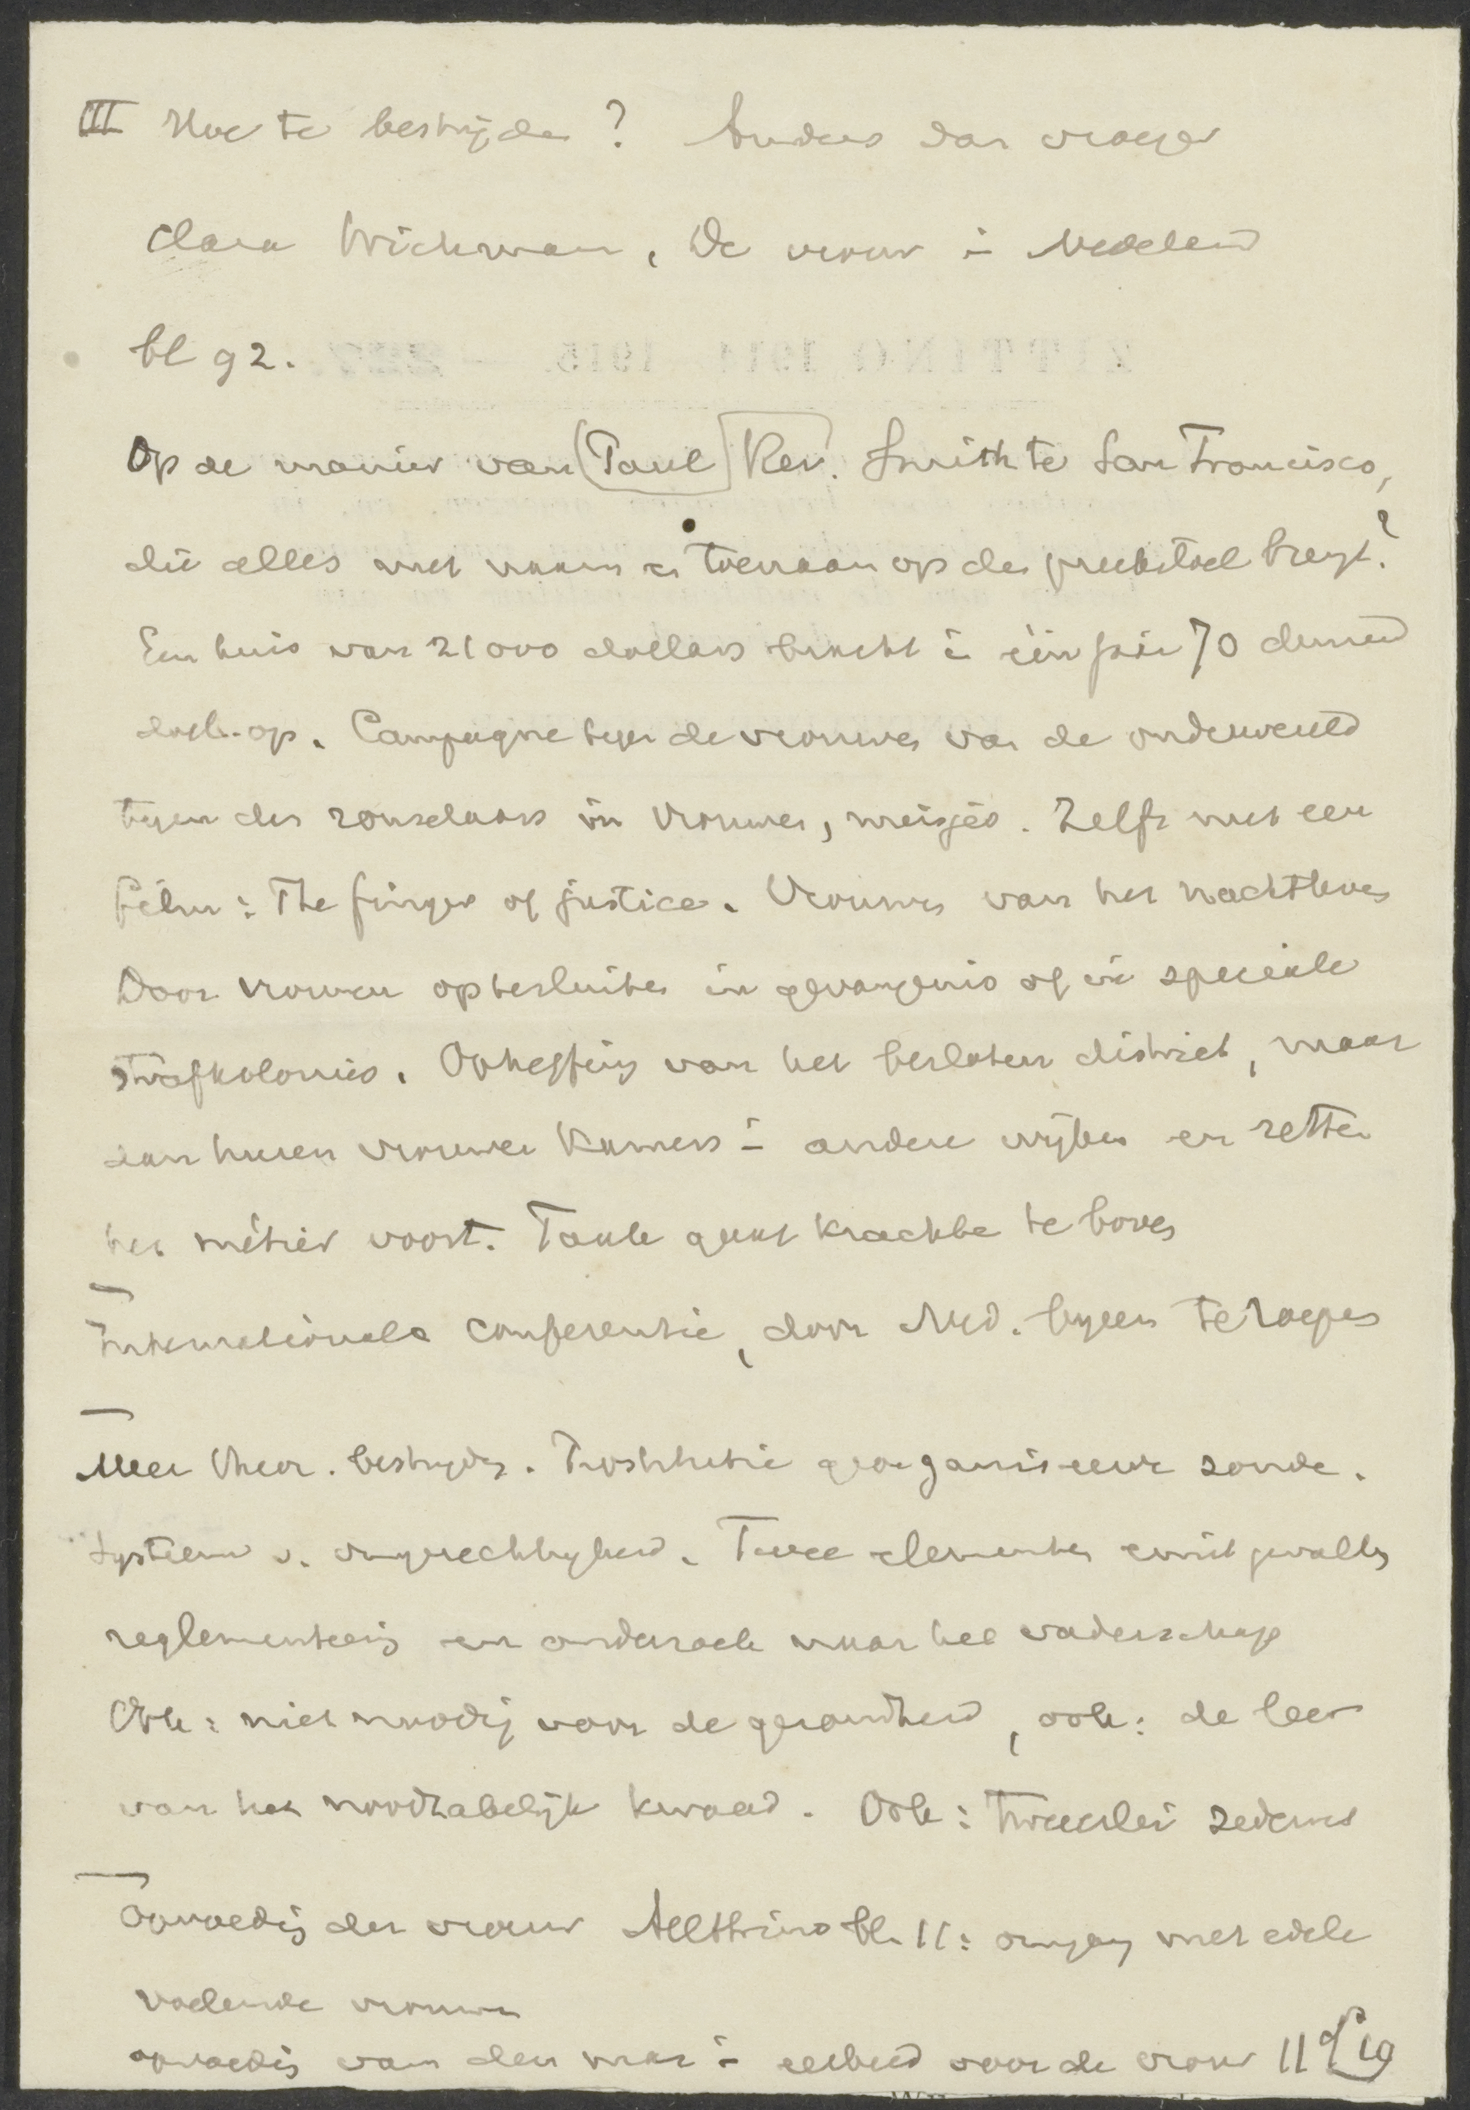 III Hoe te bestrijden? Anders dan vroeger
Clara Wichmann, De vrouw in Nederland
bl 92.
Op de manier van (Paul) Rev. Smith te San Francisco,
die alles met naam en toenaam op den preekstoel brengt?
Een huis van 21000 dollars bracht in één jaar 70 duizend
doll. op. Campagne tegen de vrouwen van de onderwereld
tegen den zonselaars in vrouwen, meisjes. Zelfs met een
film: The finger of justice. Vrouwen van het nachtleven
Door vrouwen op te sluiten in gevangenis of in speciale
strafkolonies. Opheffing van het besloten district, maar
dan huren vrouwen kamers in andere wijken en zetten
het métier voort. Taak gaat krachten te boven
Internationale conferentie, door Ned. bijeen te roepen
Meer theor. bestrijdg. Prostitutie georganiseerde zonde.
Systeem v. ongerechtigheid. Twee elementen eruit gevallen
reglementeering en onderzoek naar het vaderschap
Ook: niet noodig voor de gezondheid, ook: de leer
van het noodzakelijk kwaad. Ook: tweeërlei
Opvoeding der vrouw Aletrino bl. 11: omgang met edele
voelende vrouwen
opvoeding van den man in eerbied voor de vrouw 11